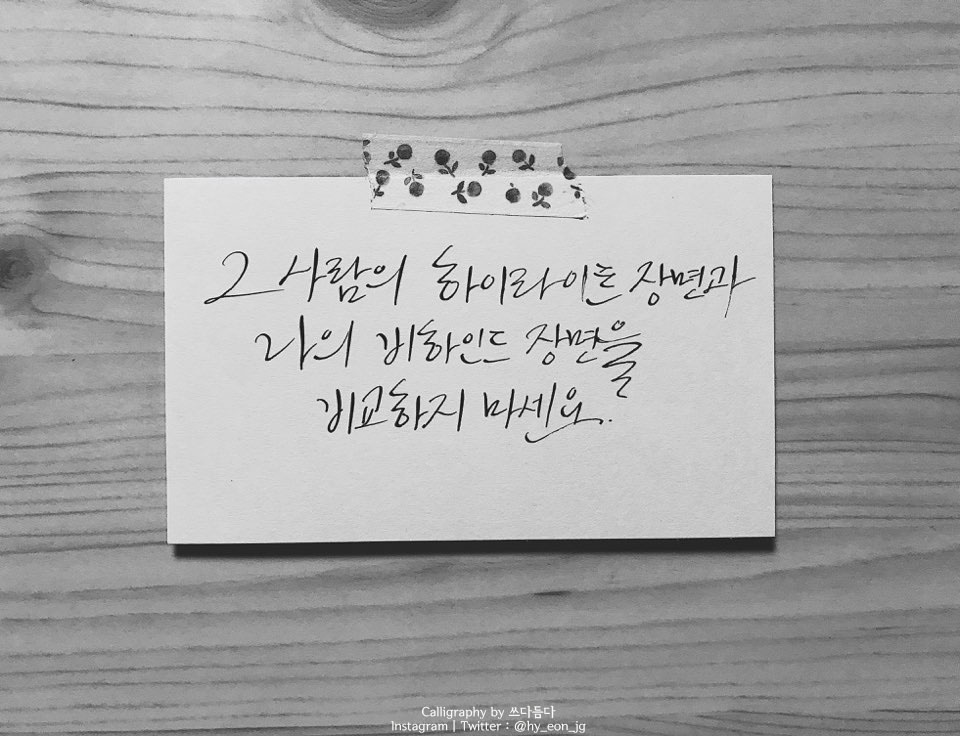 그 사람의 하이라이트 장면과
나의 비하인드 장면을
비교하지 마세요.
Calligraphy by 쓰다듬다
Instagram | Twitter : @hy_eon_jg